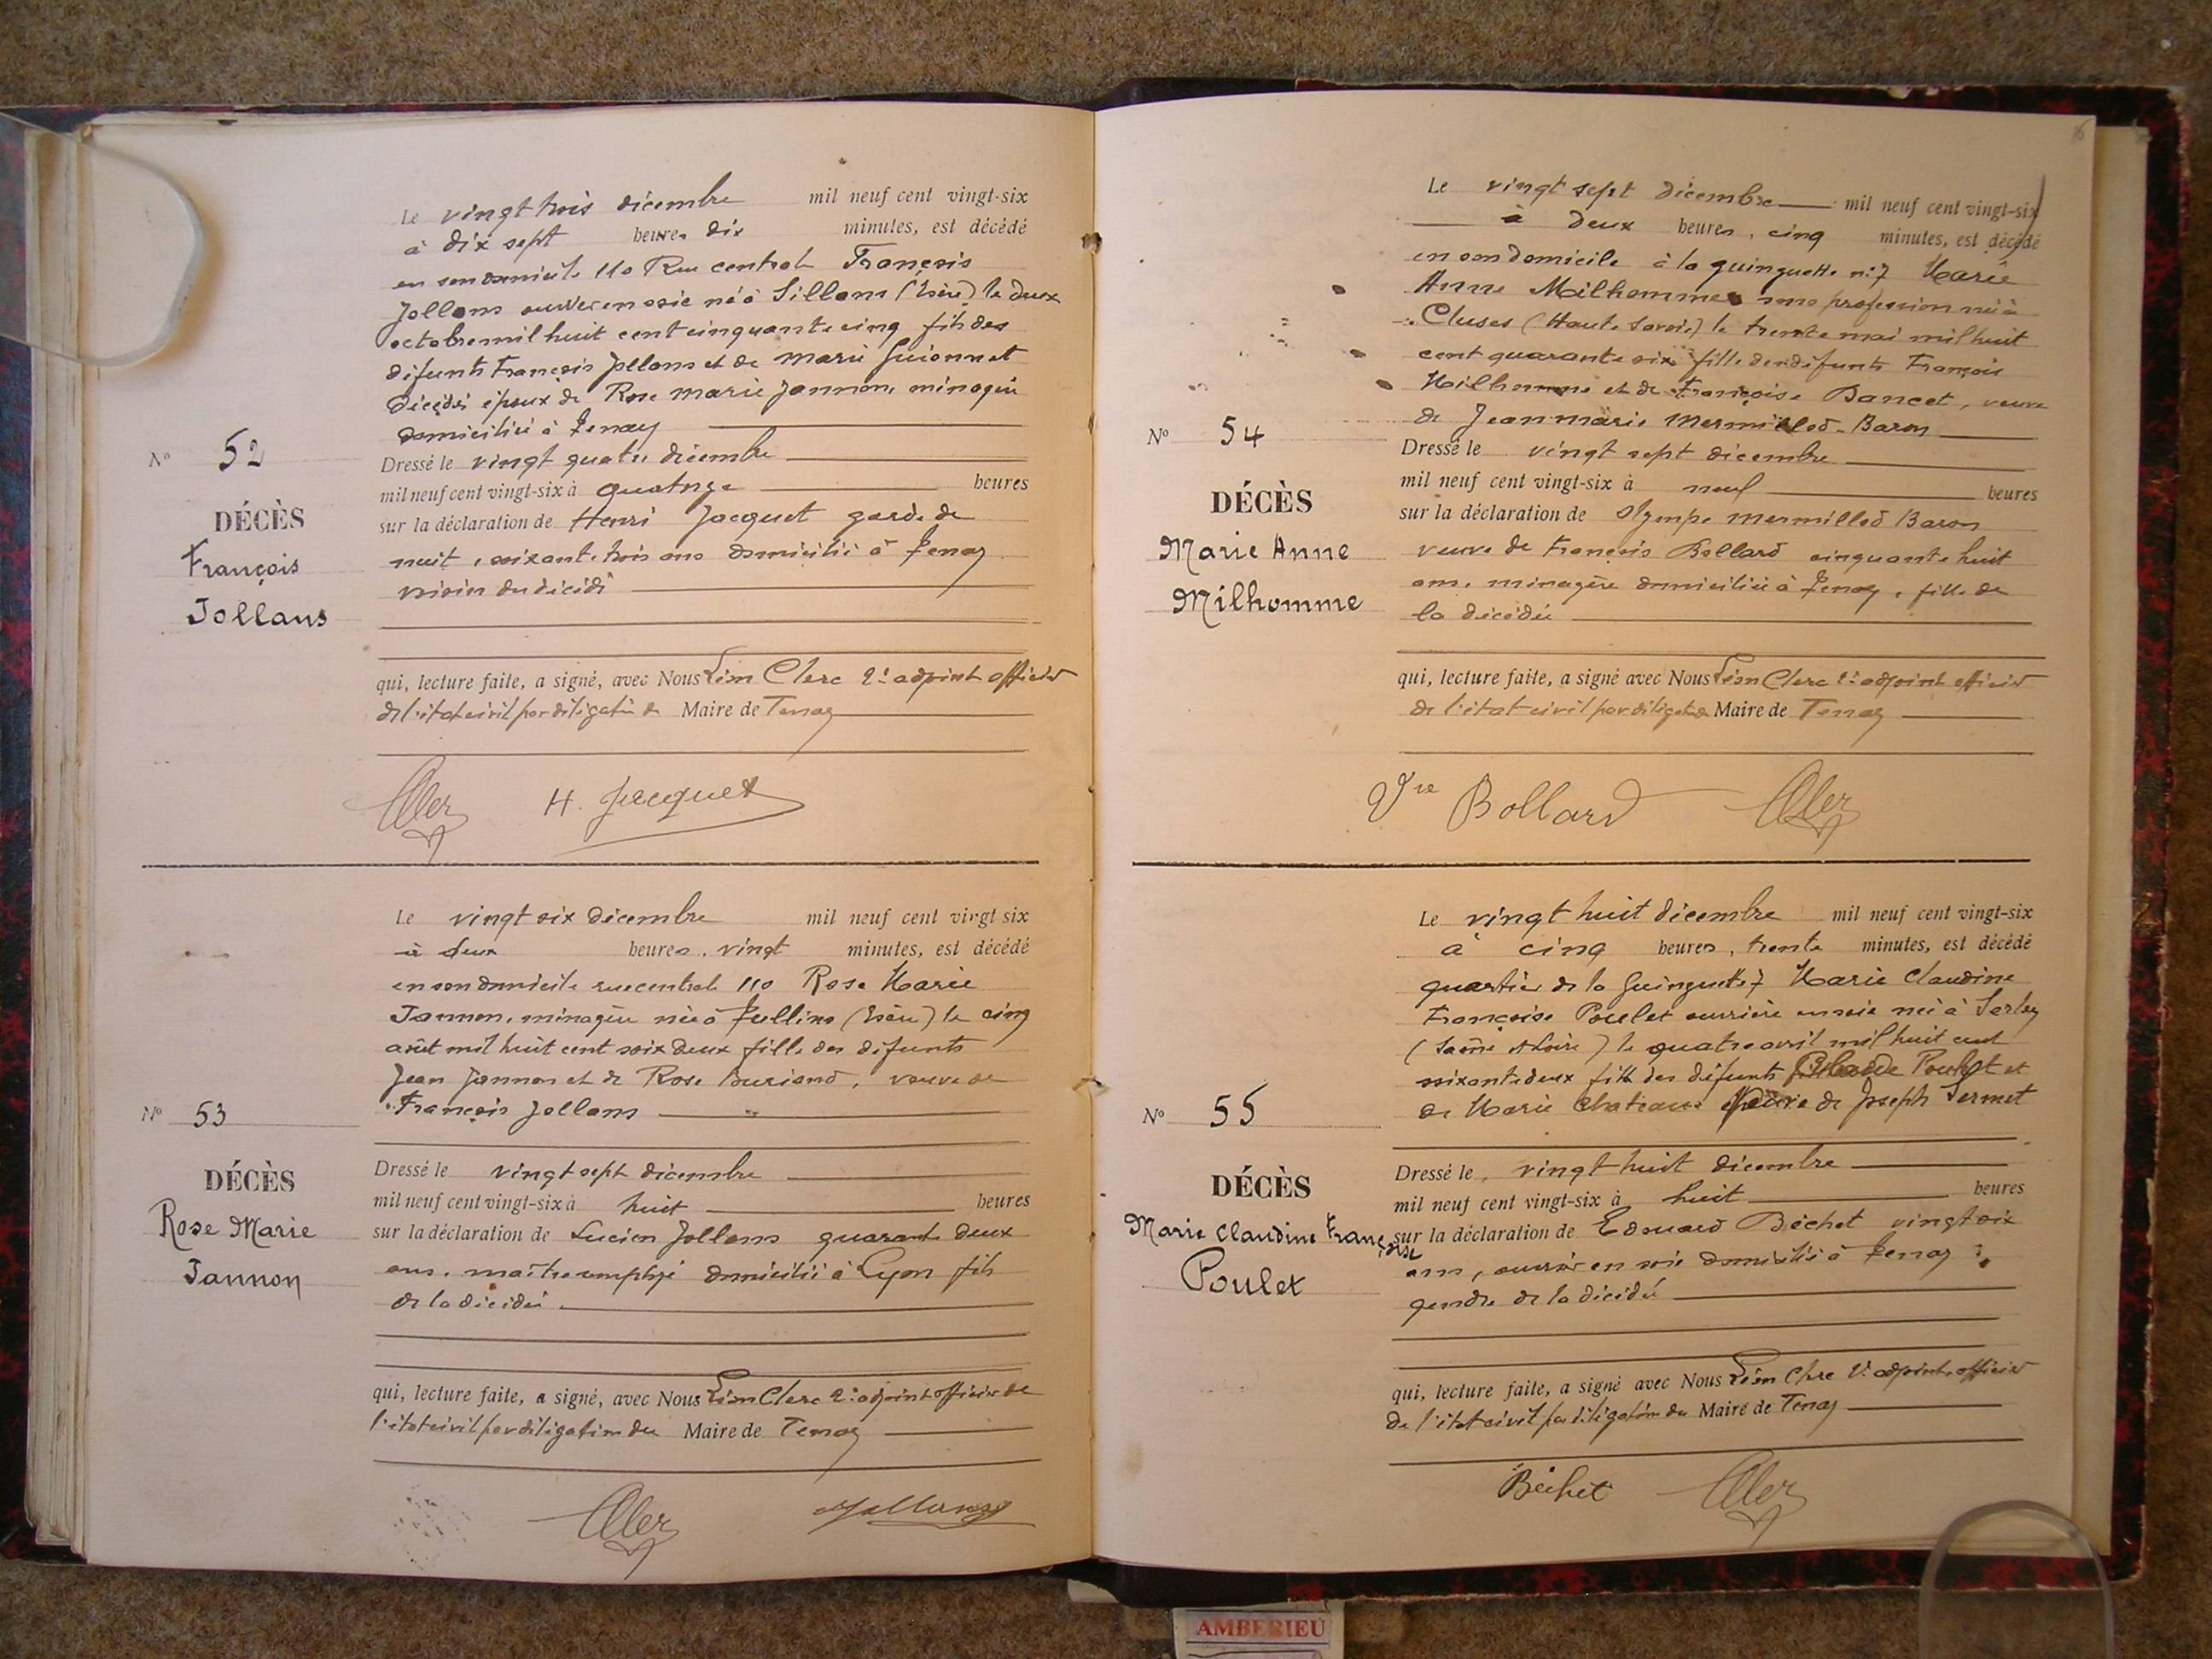 Le vingt trois décembre mil neuf cent vingt-six
à dix sept heures dix minutes, est décédé
en son domicile 110 Rue centrale François
Jollans ouvrier en soie né à Sillans (Isère) le deux
octobre mil huit cent cinquante cinq fils des
défunts François Jollans et de Marie Guionnet
décédés époux de Rose Marie Jannon, ménagère
domiciliée à Tenay
N° 52
DÉCÈS
François
Jollans
Dressé le vingt quatre décembre
mil neuf cent vingt-six à quatorze heures
sur la déclaration de Henri Jacquet garde de
nuit, soixante trois ans domicilié à Tenay
voisin du décédé
qui, lecture faite, a signé, avec Nous Léon Clerc 2e adjoint officier
de l'état civil par délégation du Maire de Tenay
H. Jacquet
Le vingt six décembre mil neuf cent vingt six
à deux heures, vingt minutes, est décédé
en son domicile rue centrale 110 Rose Marie
Jannon, ménagère née à Tullins (Isère) le cinq
août mil huit cent soix deux fille des défunts
Jean Jannon et de Rose, veuve de
François Jollans
N° 53
DÉCÈS
Rose Marie
Jannon
Dressé le vingt sept décembre
mil neuf cent vingt-six à huit heures
sur la déclaration de Lucien Jollans quarante deux
ans, maître employé domicilié à Lyon fils
de la décédée.
qui, lecture faite, a signé, avec Nous Léon Clerc 2e adjoint officier de
l'état civil par délégation du Maire de Tenay
Jollans
Le vingt sept décembre mil neuf cent vingt-six
à deux heures, cinq minutes, est décédé
en son domicile à la guinguette n° 7 Marie
Anne Milhomme sans profession née à
Cluses (Haute Savoie) le trente mai mil huit
cent quarante six fille des défunts François
Milhomme et de Françoise Bancet, veuve
de Jean marie Mermillod-Baron
N° 54
DÉCÈS
Marie Anne
Milhomme
Dressé le vingt sept décembre
mil neuf cent vingt-six à neuf heures
sur la déclaration de Olympe Mermillod Baron
veuve de François Bollard cinquante huit
ans, ménagère domiciliée à Tenay, fille de
la décédée
qui, lecture faite, a signé avec Nous Léon Clerc 2e adjoint officier
de l'état civil par délégation Maire de Tenay
Vve Bollard
Le vingt huit décembre mil neuf cent vingt-six
à cinq heures, trente minutes, est décédé
quartier de la Guinguette 7 Marie Claudine
Françoise Poulet ouvrière en soie née à
(Saône et Loire) le quatre avril mil huit cent
soixante deux fille des défunts Claude Poulet et
de Marie Chateau veuve de Joseph Sermet
N° 55
DÉCÈS
Marie Claudine Françoise
Poulet
Dressé le vingt huit décembre
mil neuf cent vingt-six à huit heures
sur la déclaration de Edouard Béchet vingt six
ans, ouvrier en soie domicilié à Tenay
gendre de la décédée
qui, lecture faite, a signé avec Nous Léon Clerc 2e adjoint officier
de l'état civil par délégation du Maire de Tenay
Béchet
AMBERIEU